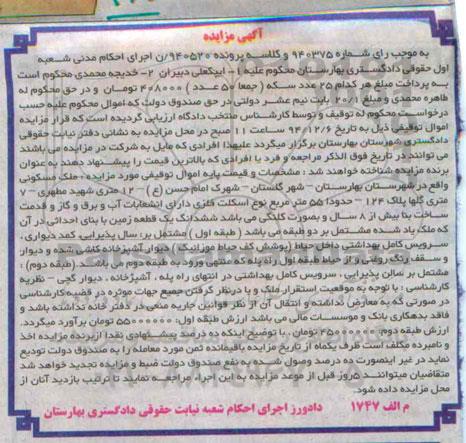 آگهی مزایده
به موجب رای شماره ۹۴۰۳۷۵ و کلاسه پرونده ۹۴۰۵۲۰/ن اجرای احکام مدنی شعبه
اول حقوقی دادگستری بهارستان محکوم علیه ۱- ایبکعلی دبیران ۲- خدیجه محمدی محکوم است
به پرداخت مبلغ هر کدام ۲۵ عدد سکه (جمعا ۵۰ عدد) ۴۰۸۰۰۰ تومان و در حق محکوم له
طاهره محمدی و مبلغ ۲۰/۱ بابت نیم عشر دولتی در حق صندوق دولت که اموال محکوم علیه حسب
درخواست محکوم له توقیف و توسط کارشناس منتخب دادگاه ارزیابی گردیده است که قرار مزایده
اموال توقیفی ذیل به تاریخ ۹۴/۱۲/۶ ساعت ۱۱ صبح در محل مزایده به نشانی دفتر نیابت حقوقی
دادگستری شهرستان بهارستان برگزار میگردد علیهذا افرادی که مایل به شرکت در مزایده می باشند
می توانند در تاریخ فوق الذکر مراجعه و فرد یا افرادی که بالاترین قیمت را پیشنهاد دهند به عنوان
برنده مزایده شناخته خواهند شد: مشخصات و قیمت پایه اموال توقیفی مورد مزایده: ملک مسکونی
واقع در شهرستان بهارستان - شهر گلستان - شهرک امام حسن (ع) - ۱۲ متری شهید مطهری - ۷
متری گلها پلاک ۱۲۴ - حدودا ۵۵ متر مربع نوع اسکلت فلزی دارای انشعابات آب و برق و گاز و قدمت
ساخت بنا بیش از ۸ سال و بصورت کلنگی می باشد ششدانگ یک قطعه زمین با بنای احداثی در آن
که ملک یاد شده مشتمل بر دو طبقه می باشد (طبقه اول) مشتمل بر: سال پذیرایی، کمد دیواری،
سرویس کامل بهداشتی داخل حیاط (پوشش کف حیاط موزائیک) دیوار آشپزخانه کاشی شده و دیوار
و سقف رنگ روغنی و از حیاط طبقه اول راه پله که منتهی ورود به طبقه دوم می باشد. (طبقه دوم):
مشتمل بر سالن پذیرایی، سرویس کامل بهداشتی در انتهای راه پله، آشپزخانه، دیوار گچی - نظریه
کارشناسی: با توجه به موقعیت استقرار ملک و با درنظر گرفتن جمیع جهات موثره در قضیه کارشناسی
در صورتی که به معارض نداشته و انتقال آن از نظر قوانین جاریه منعی در دفتر خانه نداشته باشد و
فاقد بدهکاری بانک و موسسات مالی می باشد ارزش طبقه اول: ۵۵۰۰۰۰۰۰ تومان برآورد میگردد.
ارزش طبقه دوم: ۴۵۰۰۰۰۰۰ تومان. با توضیح اینکه ده درصد پیشنهادی نقدا ازبرنده مزایده اخذ
و نامبرده مکلف است ظرف یکماه از تاریخ مزایده باقیمانده ثمن مورد معامله را به صندوق دولت تودیع
نماید در غیر اینصورت ده درصد وصول شده به نفع صندوق دولت ضبط و مزایده تجدید خواهد شد
متقاضیان میتوانند ۵روز قبل از موعد مزایده به این اجراء مراجعه نمایند تا ترتیب بازدید آنان از
محل مزایده داده شود.
م الف ۱۷۴۷ دادورز اجرای احکام شعبه نیابت حقوقی دادگستری بهارستان